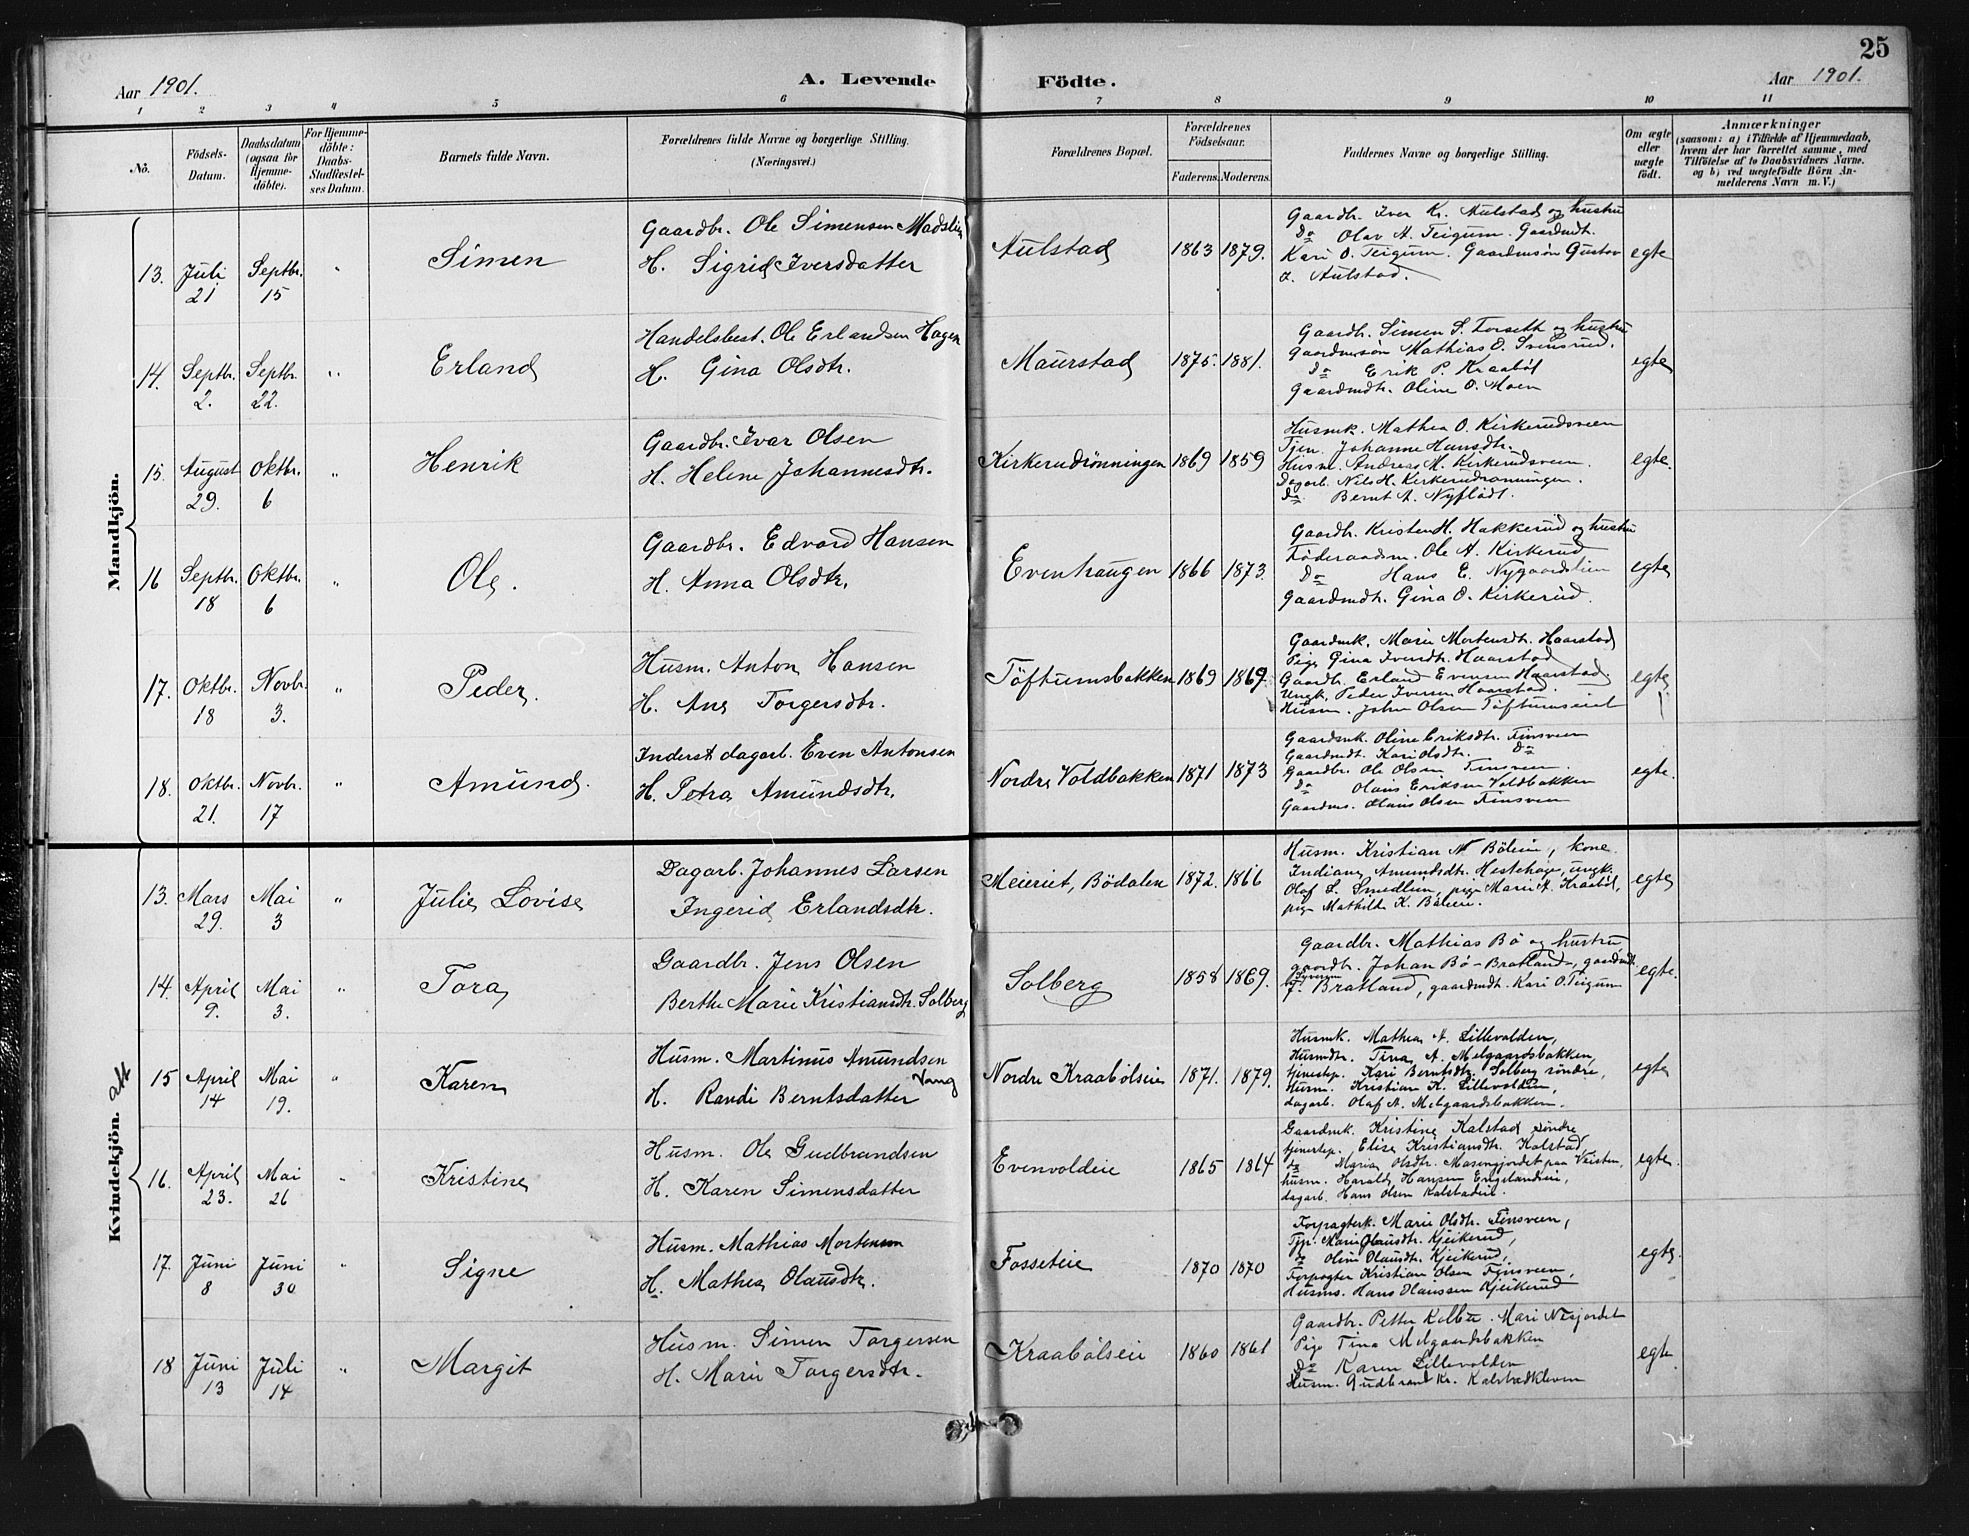 25
Aar 1901.
A. Levende
Födte.
Aar 1901.
1 2 3 4 5 6 7 8 9 10 11
No.
Födsels-Datum.
Daabsdatum (ogsaa for Hjemmedöbte).
For Hjemmedöbte: Daabs-Stadfæstelses Datum.
Barnets fulde Navn.
Forældrenes fulde Navne og borgerlige Stilling. (Næringsvei.)
Forældrenes Bopæl.
Forældrenes Födselsaar.
Faderens. Moderens.
Faddernes Navne og borgerlige Stilling.
Om ægte eller uægte født.
Anmærkninger
(saasom: a) i Tilfælde af Hjemmedaab, hvem der har forrettet samme, med Tilföielse af to Daabsvidners Navne, og b) ved uægtefödte Börn Anmelderens Navn m. V.)
Mandkjön.
13. Juli 21 Septbr. 15 " Simen
Gaardbr. Ole Simensen Madslien
H. Sigrid Iversdatter
Aulstad 1863 1879.
Gaardbr. Iver Kr. Aulstad og hustru
Do Olav A. Teigum. Gaardmdt.
Kari O. Teigum. Gaardmsøn Gustav
I. Aulstad.
egte
14. Septbr. 2. Septbr. 22. " Erland
Handelsbest. Ole Erlandsen Hagen
H. Gina Olsdtr.
Maurstad 1875. 1881.
Gaardbr. Simen S. Forseth og hustru
Gaardmsøn Mathias O. Svensrud.
Do Erik P. Kraabøl
Gaardmdtr. Oline O. Moen
egte
15. August 29. Oktbr. 6 " Henrik
Gaardbr. Ivar Olsen
H. Helene Johannesdtr.
Kirkerudrönningen 1869 1859
Husmk. Mathea O. Kirkerudsveen
Tjen. Johanne Hansdtr.
Husm. Andreas M. Kirkerudsveen.
Dagarb. Nils H. Kirkerudrønningen.
Do Bernt A. Nyflödt.
egte.
16 Septbr. 18 Oktbr. 6 " Ole.
Gaardbr. Edvard Hansen
H. Anna Olsdtr.
Evenhaugen 1866 1873.
Gaardbr. Kristen H. Hakkerud og hustru
Føderaadsm. Ole A. Kirkerud
Do Hans E. Nygaardslien
Gaardmdtr. Gina O. Kirkerud.
egte
17. Oktbr. 18 Novbr. 3. " Peder.
Husm. Anton Hansen
H. Ane Torgersdtr.
Töftumsbakken 1869 1869.
Gaardmk. Marie Mortensdtr. Haarstad
Pige Gina Iversdtr. Haarstad
Gaardbr. Erland Evensen Haarstad
Ungk. Peder Iversen Haarstad.
Husm. Johan Olsen Töftumseiet
egte
18. Oktbr. 21. Novbr. 17 " Amund.
Inderst dagarb. Even Antonsen
H. Petra Amundsdtr.
Nordre Voldbakken 1871 1873
Gaardmk. Oline Eriksdtr. Finsveen
Gaardmdt. Kari Olsdtr. Do
Gaardbr. Ole Olsen Finsveen.
Do Olaus Eriksen Voldbakken
Gaardms. Olaus Olsen Finsveen
egte.
Kvindekjön.
13. Mars 29. Mai 3 " Julie Lovise
Dagarb. Johannes Larsen
Ingerid Erlandsdtr.
Meieriet, Bödalen 1872. 1866
Husm. Kristian N Böleie, kone
Indiana Amundsdtr. Hestehage, ungk.
Olaf L. Smedlien, pige Marie A. Kraabøl,
pige Mathilde K. Böleie.
egte
14. April 9. Mai 3. " Tora
Gaardbr. Jens Olsen
Berthe Marie Kristiansdtr. Solberg
Solberg 1858 1869.
Gaardbr. Mathias Bö og hustru,
gaardbr. Johan Bö-Bratland, gaardmdt.
Bratland, gaardmdt. Kari O. Teigum
egte.
15 April 14 Mai 19. " Karen
Husm. Martinus Amundsen Vang
H. Randi Berntsdatter
Nordre Kraabölseie 1871. 1879.
Husmk. Mathea A. Lillevolden,
Husmdtr. Tina A. Melgaardsbakken,
tjenestep. Kari Berntsdtr. Solberg söndre,
Husm. Kristian K. Lillevolden,
dagarb. Olaf A. Melgaardsbakken.
egte
16. April 23. Mai 26 " Kristine
Husm. Ole Gudbrandsen
H. Karen Simensdatter
Evenvoldeie 1865 1864
Gaardmk. Kristine Kalstad söndre
tjenestep. Elise Kristiansdtr. Kalstad
Do Maria Olsdtr. Masengjordet paa Vristen,
husm. Harald Hansen Engelandseie,
dagarb. Hans Olsen Kalstadeie.
egte.
17. Juni 8 Juni 30 " Signe
Husm. Mathias Mortensen
H. Mathea Olausdtr.
Fosseteie 1870 1870
Forpagterk. Marie Olsdtr. Finsveen,
Tjp. Marie Olausdtr. Kjeikerud,
Do Oline Olausdtr. Kjeikerud,
Forpagter Kristian Olsen Finsveen,
Husms. Hans Olaussen Kjeikerud
egte.
18 Juni 13 Juli 14 " Margit
Husm. Simen Torgersen
H. Marie Torgersdtr.
Kraabölseie 1860 1861
Gaardbr. Petter Kolbu. Mari Nisjordet
Pige Tina Melgaardsbakken
Do Karen Lillevolden
Husm. Gudbrand Kr. Kalstadkleven
egte